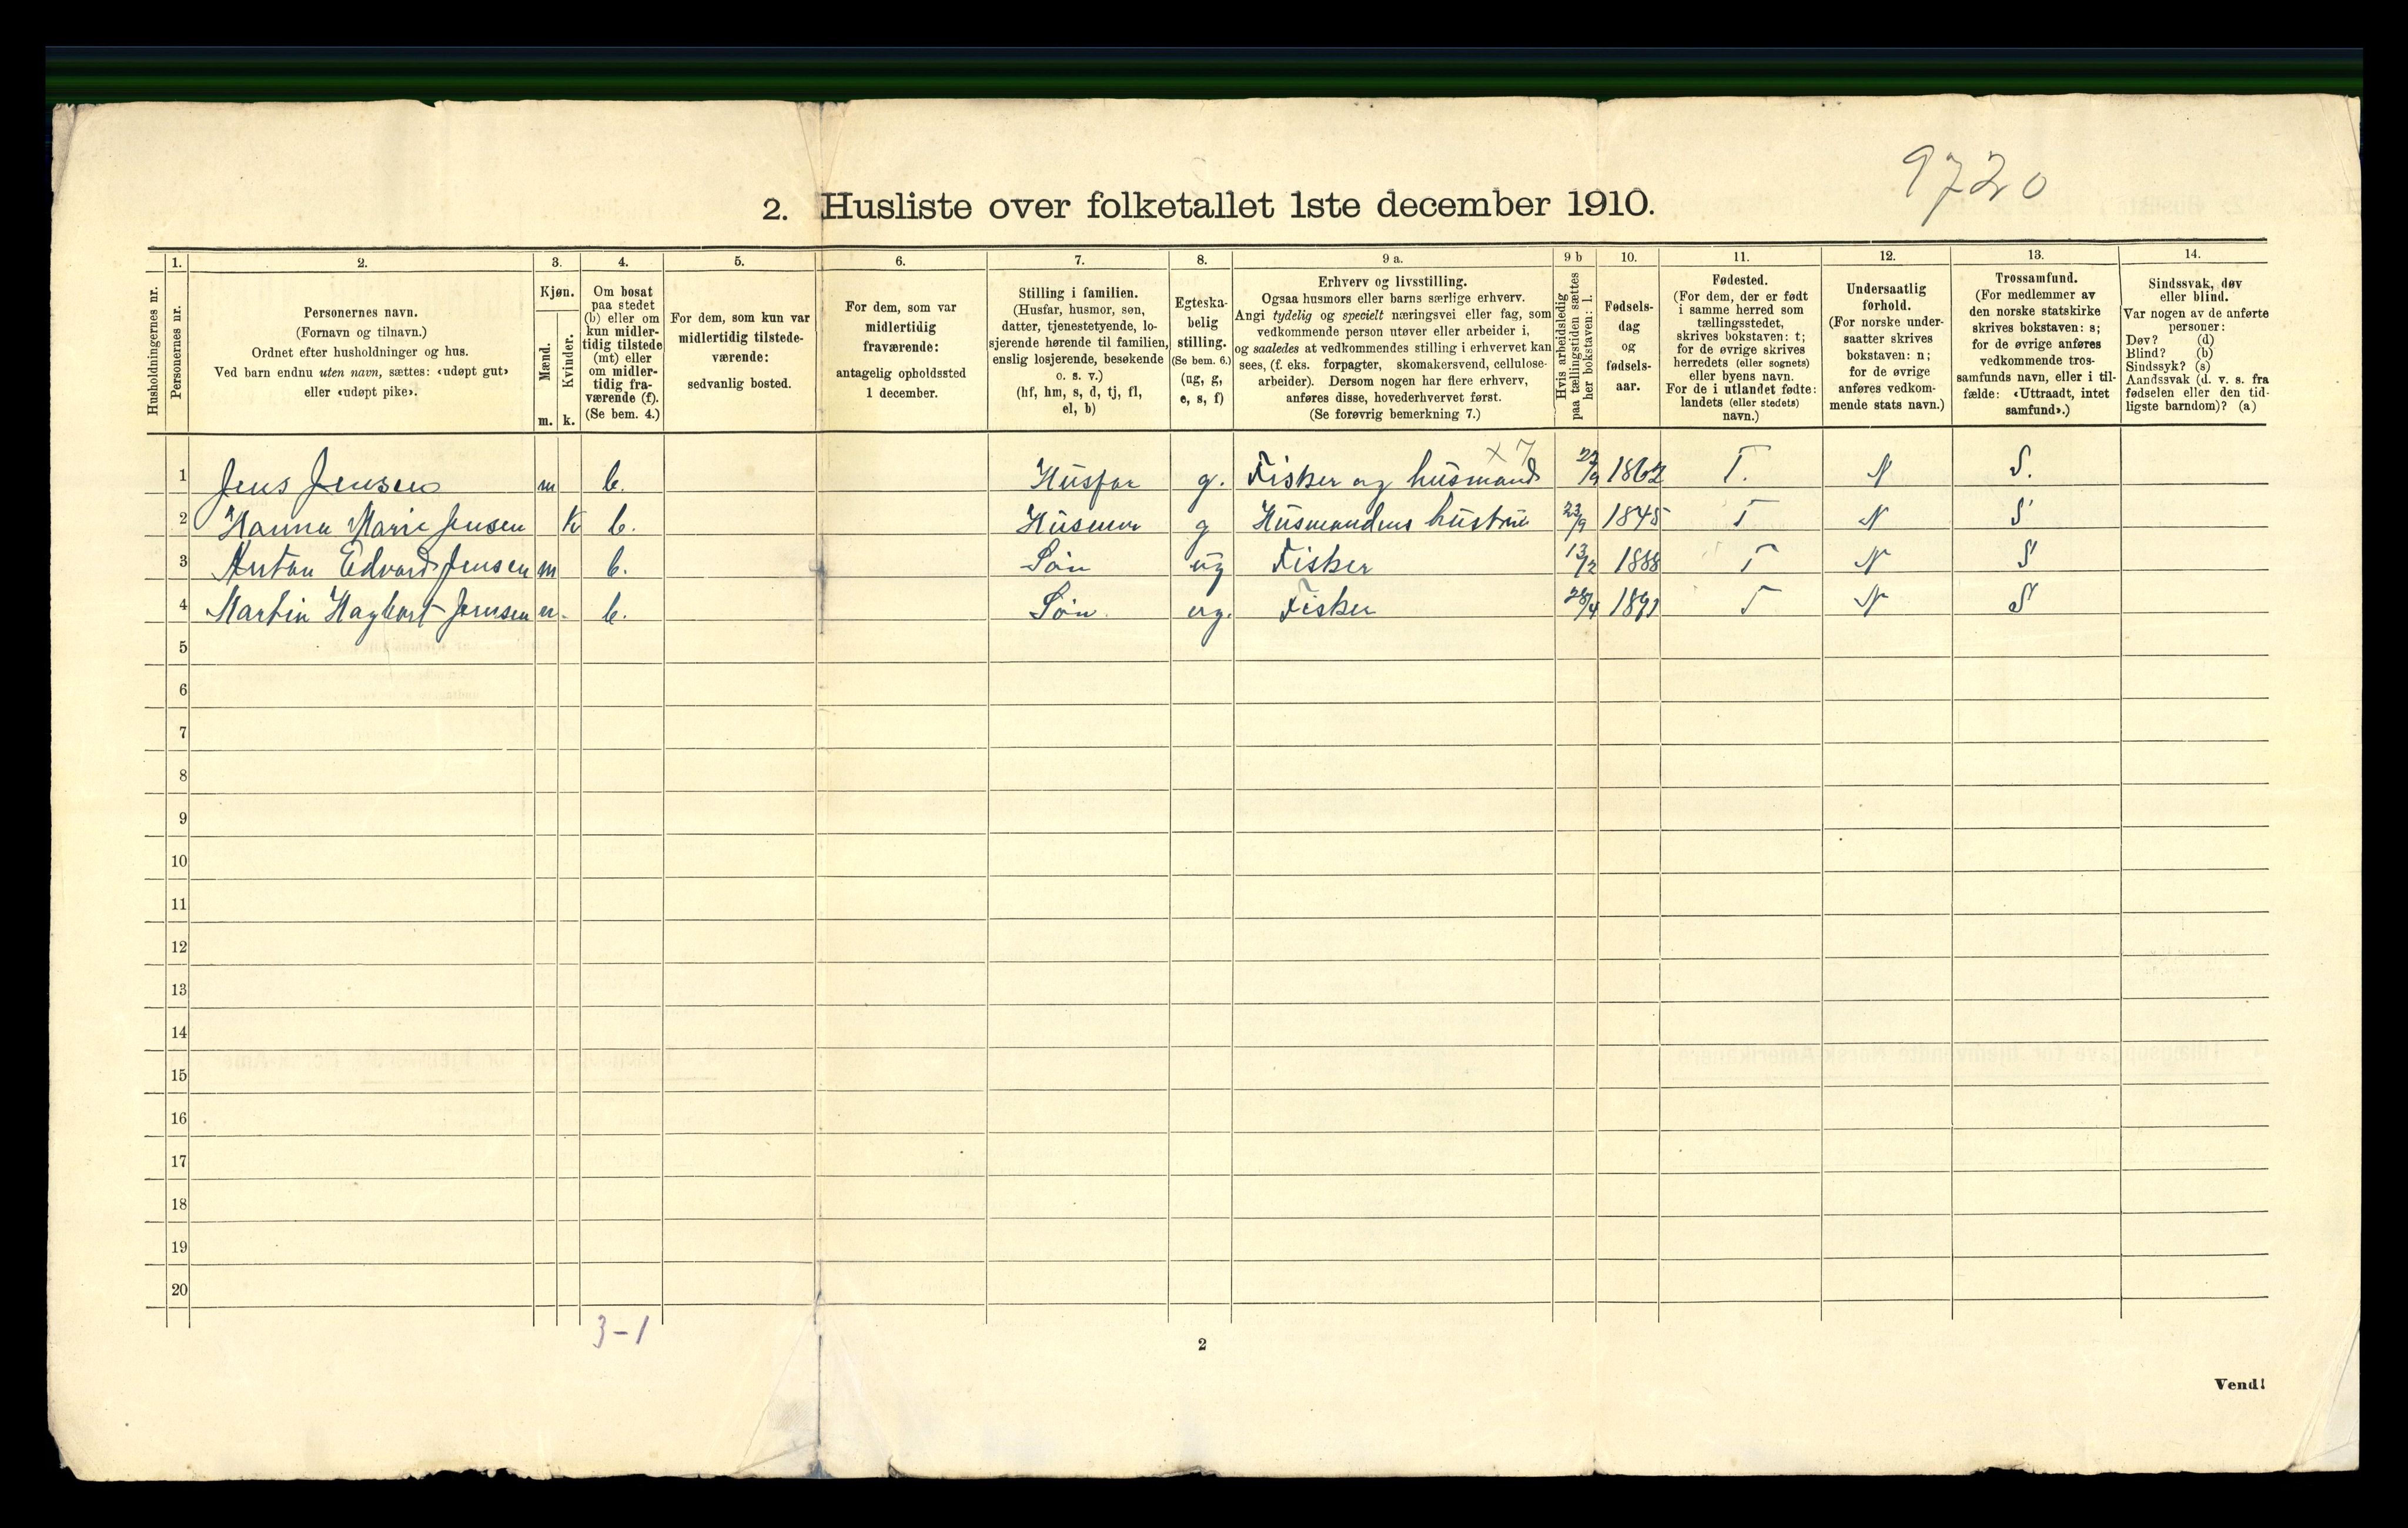 9720
2. Husliste over folketallet 1ste december 1910.
Husholdningernes nr.
1.
Personernes nr.
2.
Personernes navn.
(Fornavn og tilnavn.)
Ordnet efter husholdninger og hus.
Ved barn endnu uten navn, sættes: «udøpt gut»
eller «udøpt pike».
3.
Kjøn.
Mænd.
m.
Kvinder.
k.
4.
Om bosat
paa stedet
(b) eller om
kun midler-
tidig tilstede
(mt) eller
om midler-
tidig fra-
værende (f).
(Se bem. 4.)
5.
For dem, som kun var
midlertidig tilstede-
værende:
sedvanlig bosted.
6.
For dem, som var
midlertidig
fraværende:
antagelig opholdssted
1 december.
7.
Stilling i familien.
(Husfar, husmor, søn,
datter, tjenestetyende, lo-
sjerende hørende til familien,
enslig losjerende, besøkende
o. s. v.)
(hf, hm, s, d, tj, fl,
el, b)
8.
Egteska-
belig
stilling.
(Se bem. 6.)
(ug, g,
e, s, f)
9 a.
Erhverv og livsstilling.
Ogsaa husmors eller barns særlige erhverv.
Angi tydelig og specielt næringsvei eller fag, som
vedkommende person utøver eller arbeider i,
og saaledes at vedkommendes stilling i erhvervet kan
sees, (f. eks. forpagter, skomakersvend, cellulose-
arbeider). Dersom nogen har flere erhverv,
anføres disse, hovederhvervet først.
(Se forøvrig bemerkning 7.)
9 b
Hvis arbeidsledig
paa tællingstiden sættes
her bokstaven: l.
10.
Fødsels-
dag
og
fødsels-
aar.
11.
Fødested.
(For dem, der er født
i samme herred som
tællingsstedet,
skrives bokstaven: t;
for de øvrige skrives
herredets (eller sognets)
eller byens navn.
For de i utlandet fødte:
landets (eller stedets)
navn.)
12.
Undersaatlig
forhold.
(For norske under-
saatter skrives
bokstaven: n;
for de øvrige
anføres vedkom-
mende stats navn.)
13.
Trossamfund.
(For medlemmer av
den norske statskirke
skrives bokstaven: s;
for de øvrige anføres
vedkommende tros-
samfunds navn, eller i til-
fælde: «Uttraadt, intet
samfund».)
14.
Sindssvak, døv
eller blind.
Var nogen av de anførte
personer:
Døv? (d)
Blind? (b)
Sindssyk? (s)
Aandssvak (d. v. s. fra
fødselen eller den tid-
ligste barndom)? (a)
x 7
1 Jens Jensen m b. Husfar g. Fisker og husmand 22/9 1862 T. N S.
2 Hanna Marie Jensen K b. Husmor g Husmandens hustru 23/9 1845 T N S
3 Anton Edvard Jensen m b. Søn ug Fisker 13/2 1888 T N S
4 Martin Hagbart Jensen m. b. Søn. ug. Fisker 28/4 1891 T N S
5
6
7
8
9
10
11
12
13
14
15
16
17
18
19
20
3-1
2
Vend!